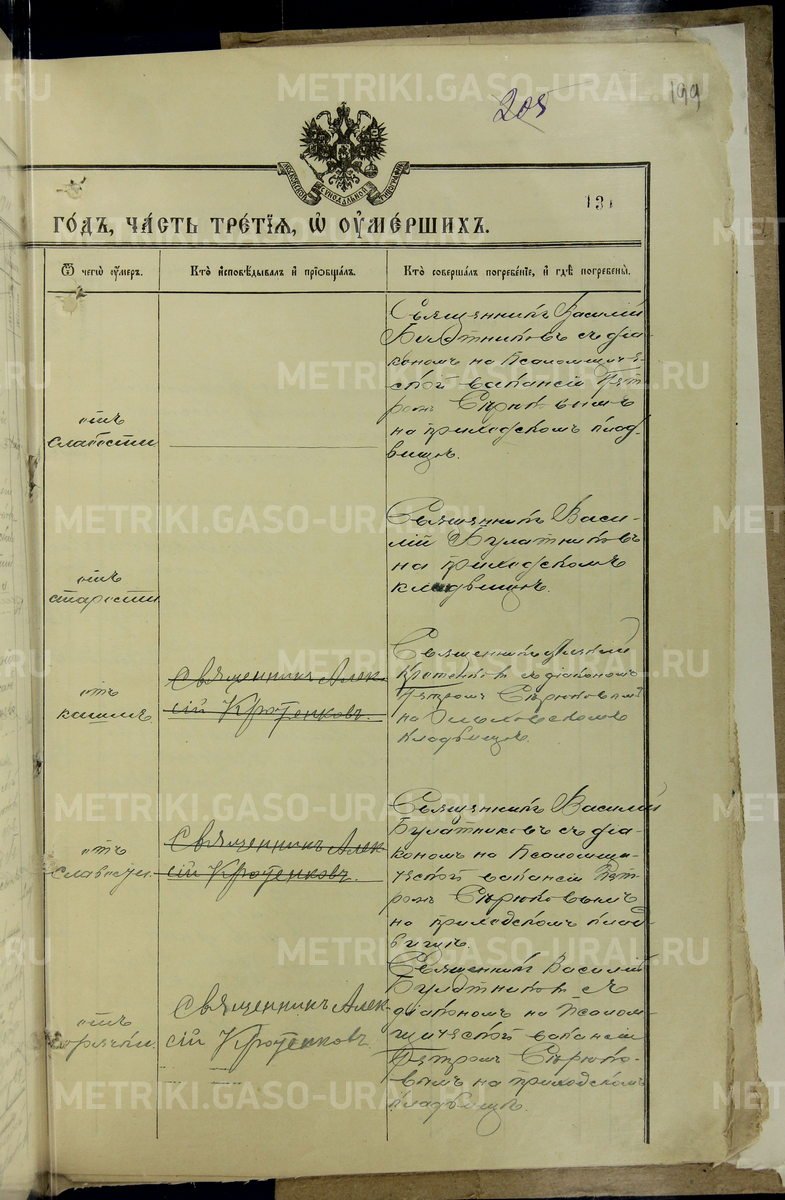 205
199
МОСКОВСКОЙ СѴНОДАЛЬНОЙ ТИПОГРАФІИ
131
ГО́ДЪ, ЧА́СТЬ ТРЕ́ТІѦ, Ѡ҆ ОУ҆МЕ́РШИХЪ.
Ѿ чегѡ̀ ᲂу҆́меръ.
Кто̀ и҆сповѣ́дывалъ и҆ прїѡбща́лъ.
Кто̀ соверша́лъ погребе́нїе, и҆ гдѣ̀ погребены̀.
отъ
слабости
Священникъ Василій
Булатниковъ съ діа-
кономъ на псаломщиче-
ской вакансіи Пет-
ромъ Сѣрюковымъ
на приходскомъ клад-
бищѣ.
отъ
старости
Священникъ Васи-
лій Булатниковъ
на приходскомъ
кладбищѣ.
отъ
кашля
Священникъ Алек-
сій Кротенковъ.
Священникъ Алексій
Кротенковъ съ діакономъ
Петромъ Сѣрюковымъ
на
кладбищѣ.
отъ
слабости.
Священникъ Алек-
сій Кротенковъ.
Священникъ Василій
Булатниковъ съ діа-
кономъ на псаломщи-
ческой вакансіи Пет-
ромъ Сѣрюковымъ
на приходскомъ клад-
бищѣ.
отъ
горячки.
Священникъ Алек-
сій Кротенковъ
Священникъ Василій
Булатниковъ съ
діакономъ на псалом-
щической вакансіи
Петромъ Сѣрюко-
вымъ на приходскомъ
кладбищѣ.
METRIKI.GASO-URAL.RU